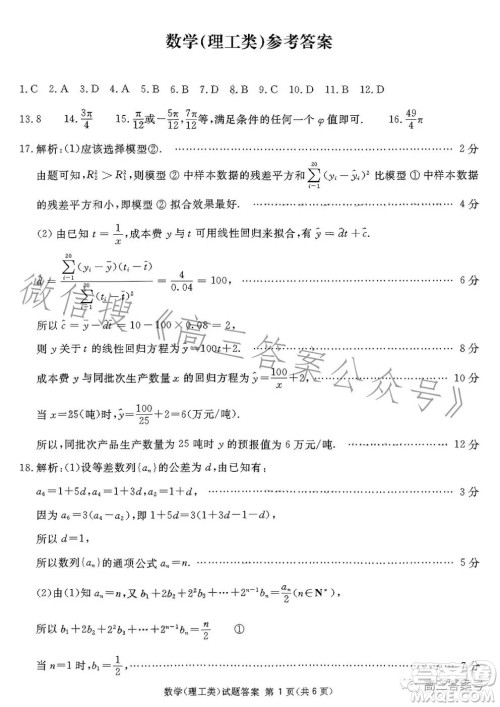 数学(理工类)参考答案
1.C 2.A 3.D 4.A 5.D 6.B 7.B 8.C 9.C 10.D 11.B 12.D
13.8 14.3π/4 15.π/12或-5π/12,7π/12等,满足条件的任何一个φ值即可. 16.49/4π
17.解析:(1)应该选择模型②. 2分
由题可知,R₂²>R₁²,则模型②中样本数据的残差平方和∑(i=1→20)(yᵢ-ŷᵢ)²比模型①中样本数据
的残差平方和小,即模型②拟合效果最好. 4分
(2)由已知t=1/x,成本费y与t可用线性回归来拟合,有ŷ=d̂t+ĉ.
d̂=∑(i=1→20)(yᵢ-ȳ)(tᵢ-t̄)/∑(i=1→20)(tᵢ-t̄)²=4/0.04=100, 6分
所以ĉ=ȳ-d̂t̄=10-100×0.08=2,
则y关于t的线性回归方程为ŷ=100t+2. 8分
成本费y与同批次生产数量x的回归方程为ŷ=100/x+2, 10分
当x=25(吨)时,ŷ=100/25+2=6(万元/吨).
所以,同批次产品生产数量为25吨时y的预报值为6万元/吨. 12分
18.解析:(1)设等差数列{aₙ}的公差为d,由已知有:
a₆=1+5d,a₄=1+3d, 3分
因为a₆=3(a₄-2),即1+5d=3(1+3d-2),
所以d=1,
所以数列{aₙ}的通项公式aₙ=n. 5分
(2)由(1)知,又b₁+2b₂+2²b₃+⋯+2ⁿ⁻¹bₙ=aₙ/2(n∈N*),
所以b₁+2b₂+2²b₃+⋯+2ⁿ⁻¹bₙ=n/2 ①
当n=1时,b₁=1/2, 7分
数学(理工类)试题答案 第1页(共6页)
微信搜《高三答案公众号》